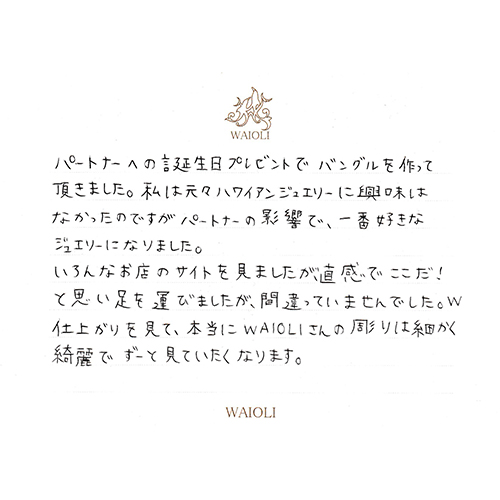 WAIOLI
パートナーへの誕生日プレゼントで バングルを作って
頂きました。私は元々ハワイアンジュエリーに興味は
なかったのですがパートナーの影響で、一番好きな
ジュエリーになりました。
いろんなお店のサイトを見ましたが、直感でここだ!
と思い足を運びましたが、間違っていませんでした。W
仕上がりを見て、本当にWAIOLIさんの彫りは細かく
綺麗で ずーと見ていたくなります。
WAIOLI